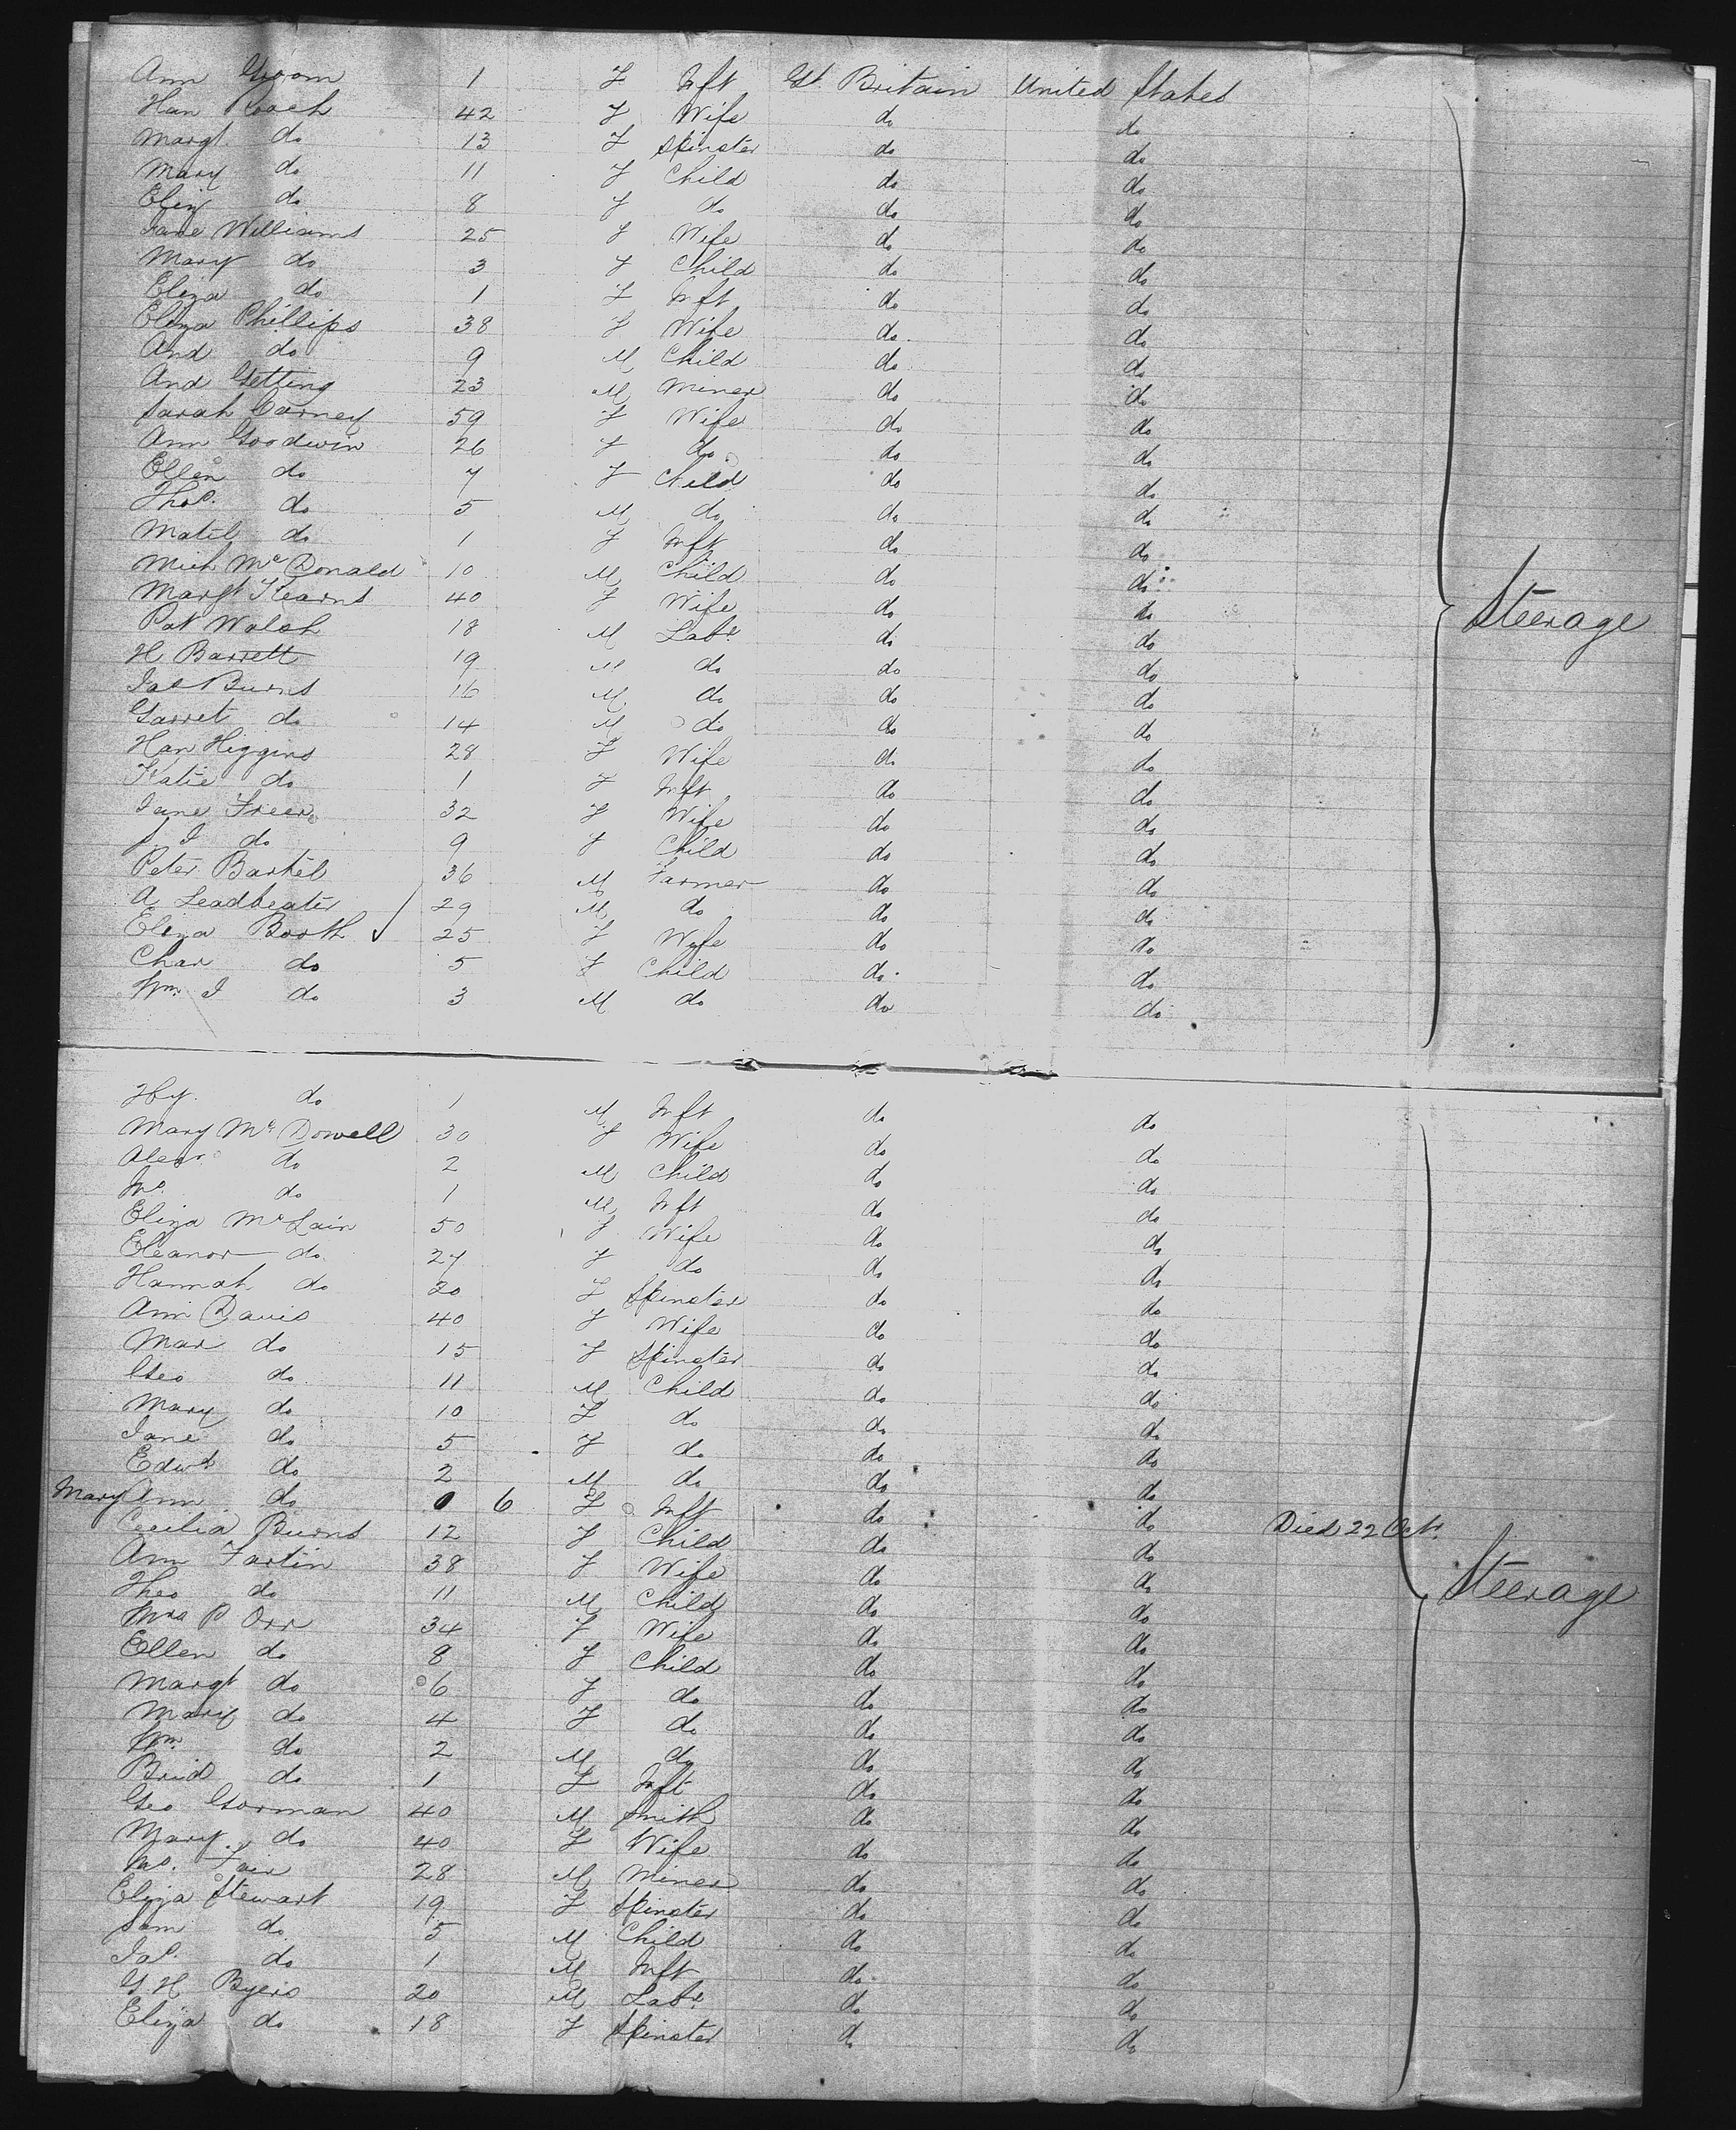 Ann Groom 1 F Inft Gt Britain United States
Han Roach 42 F Wife do do
Margt do 13 F Spinster do do
Mary do 11 F Child do do
Eliz do 8 F do do do
Jane Williams 25 F Wife do do
Mary do 3 F Child do do
Eliza do 1 F Inft do do
Eliza Phillips 38 F Wife do do
And do 9 M Child do do
And Getting 23 M Miner do do
Sarah Carney 59 F Wife do do
Ann Goodwin 26 F do do do
Ellen do 7 F Child do do
Thos. do 5 M do do do
Matil do 1 F Inft do do
Mich McDonald 10 M Child do do
Margt Kearns 40 F Wife do do
Steerage
Pat Walsh 18 M Labr do do
H Barrett 19 M do do do
Jas Burns 16 M do do do
Garret do 14 M do do do
Han Higgins 28 F Wife do do
Katie do 1 F Inft do do
Jane Freer 32 F Wife do do
J. J do 9 F Child do do
Peter Bartel 36 M Farmer do do
A Leadbeater 29 M do do do
Eliza Booth 25 F Wife do do
Char do 5 F Child do do
Wm. J do 3 M do do do
Hy. do 1 M Inft do do
Mary McDowell 30 F Wife do do
Alexr do 2 M Child do do
do 1 M Inft do do
Eliza McLain 50 F Wife do do
Eleanor do 27 F do do do
Hannah do 20 F Spinster do do
Ann Davis 40 F Wife do do
Mar do 15 F Spinster do do
Geo do 11 M Child do do
Mary do 10 F do do do
Jane do 5 F do do do
Edwd do 2 M do do do
Mary Ann do 0 6 F Inft do do Died 22 Oct.
Cecilia Burns 12 F Child do do
Ann Fartin 38 F Wife do do
Steerage
Theo do 11 M Child do do
Mrs P Orr 34 F Wife do do
Ellen do 8 F Child do do
Margt do 6 F do do do
Mary do 4 F do do do
Wm do 2 M do do do
Brid do 1 F Inft do do
Geo Gorman 40 M Smith do do
Mary do 40 F Wife do do
Fair 28 M Miner do do
Eliza Stewart 19 F Spinster do do
Sam do 5 M Child do do
Jas. do 1 M Inft do do
G H Byers 20 M Labr do do
Eliza do 18 F Spinster do do